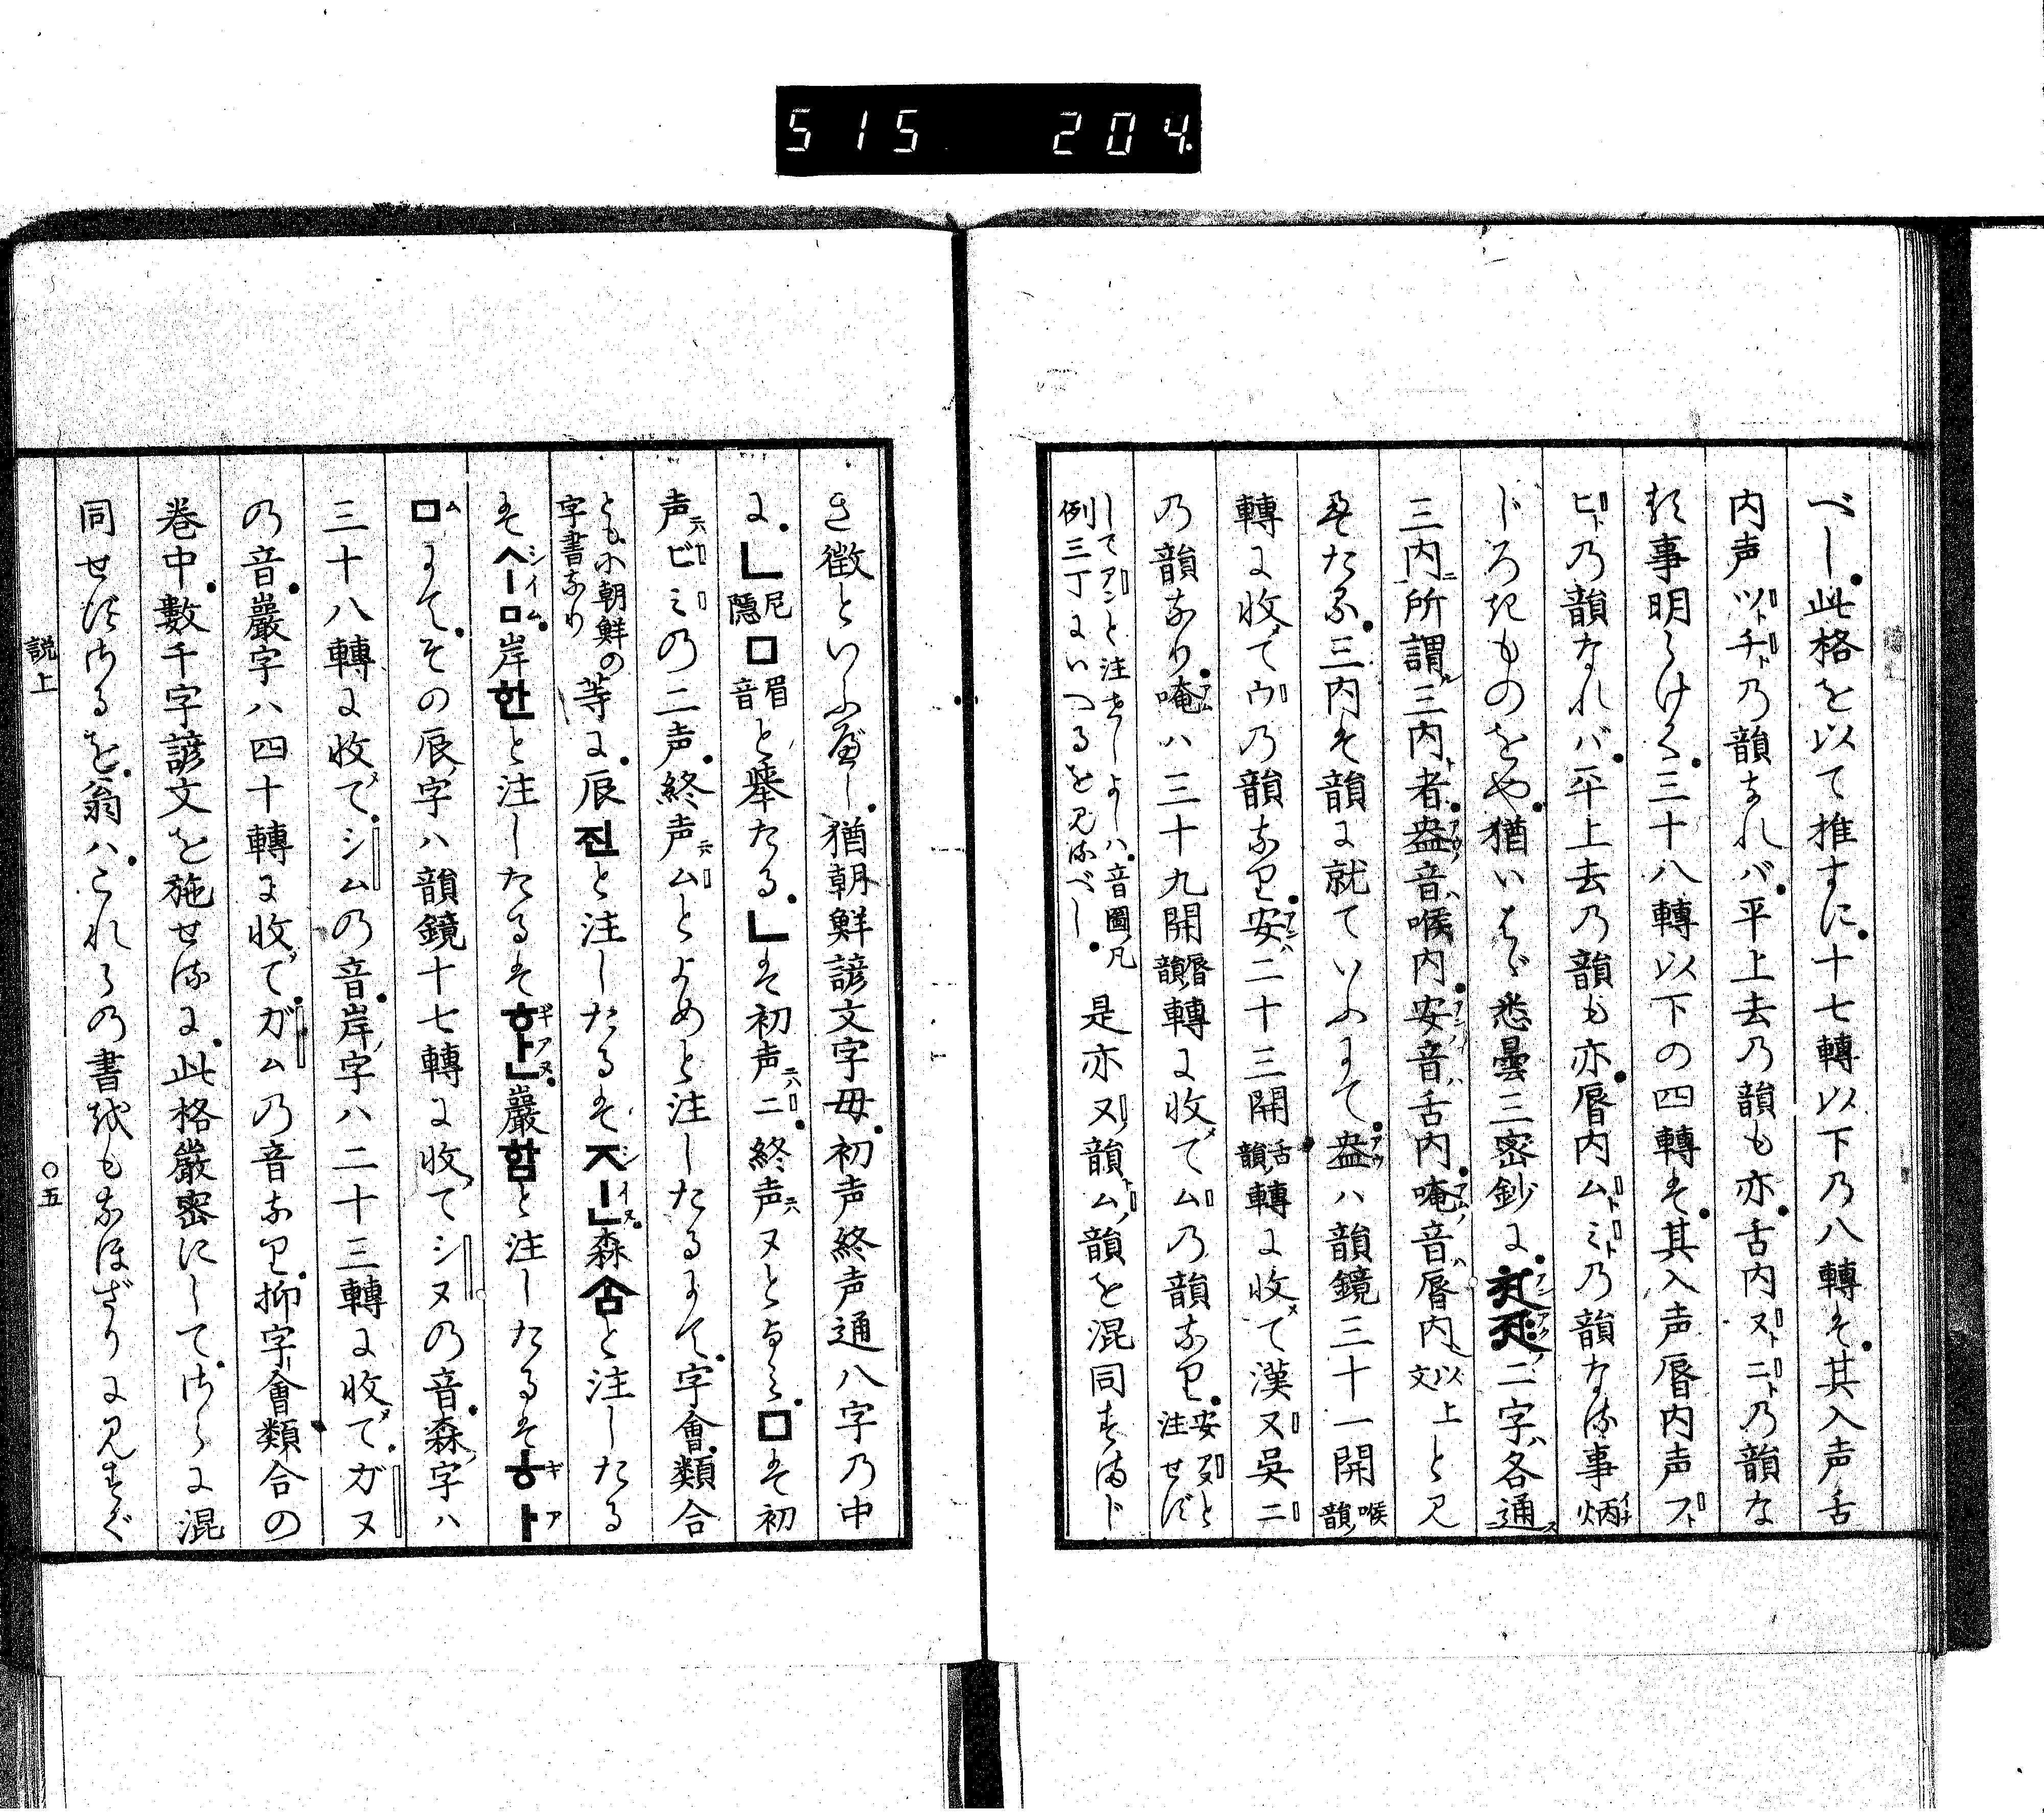 515 204
べし。此格を以て推すに。十七轉以下乃八轉は。其入声舌
内声ツトチトの韻なれバ。平上去乃韻も亦。舌内ヌトニトの韻な
る事明らけく。三十八轉以下の四轉は。其入声唇内声フト
ヒトの韻なれバ。平上去乃韻も亦。唇内ムトミトの韻なる事炳
じろきものをや。猶いはゞ悉曇三密鈔に。二字ハ各通
三内ニ所謂三内ト者。盎音ハ喉内。安音ハ舌内。唵音ハ唇内以上文と見
えたる。三内は韻に就ていふにて。盎ハ韻鏡三十一開喉韻
轉に收めてウの韻なり。安ハ二十三開舌韻轉に收めて漢ヌ吳ニ
乃韻なり。唵ハ三十九開唇韻轉に收めてムの韻なり。安ヌと注せず
してアンと注せしよしハ。音圖凡例三丁にいへるを見るべし。是亦ヌ韻トム韻を混同すまじ
き徴といふべし。猶朝鮮諺文字母。初声終声通八字乃中
に。ㄴ尼隱ㅁ眉音と擧たる。ㄴは初声ニハニ。終声ニハヌとよみ。ㅁは初
声ニハビミの二声。終声ニハムとよめと注したるにて。字會類合
ともに朝鮮の字書なり等に。辰진と注したるは진シイヌ。森숌と注したる
は심シイム。岸한と注したるは한ギアヌ。巖함と注したるは하ギア
ㅁムにて。その辰字ハ韻鏡十七轉に收めてシヌの音。森字ハ
三十八轉に收めて。シムの音。岸字ハ二十三轉に收めて。ガヌ
の音。巖字ハ四十轉に收めて。ガムの音なり。抑字會類合の
巻中。數千字諺文を施せるに。此格嚴密にして。さらに混
同せざるを。翁ハこれらの書をもなほざりに見すぐ
説上
〇五